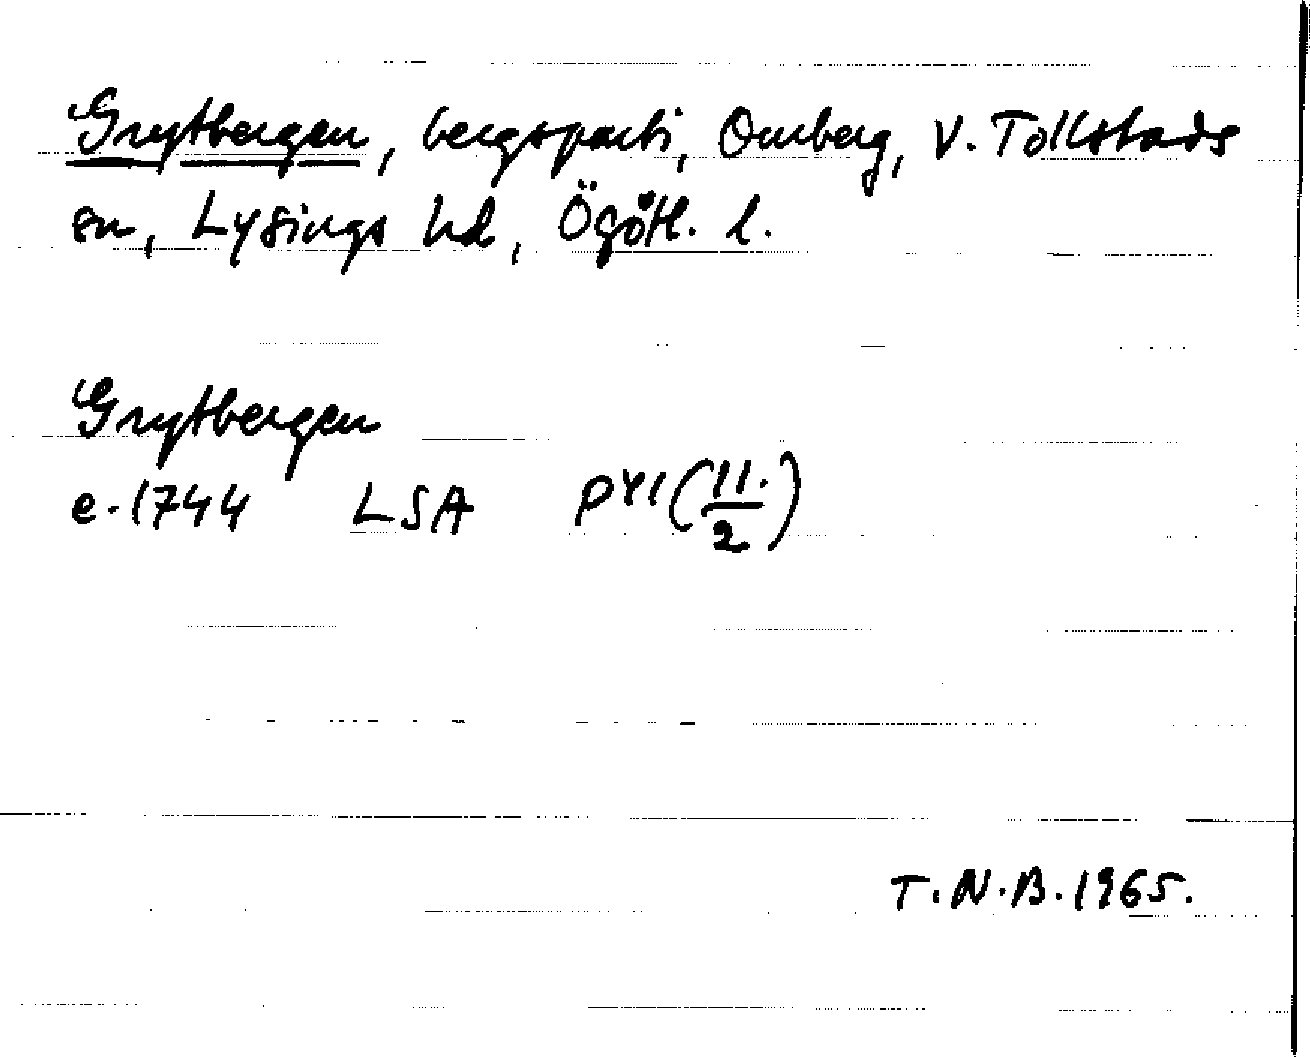 Grytbergen, bergsparti, Omberg, V. Tollstads
sn, Lysings hd, Ögötl. l.
Grytbergen
e. 1744 LSA P41 (11./2)
T.N.B. 1965.